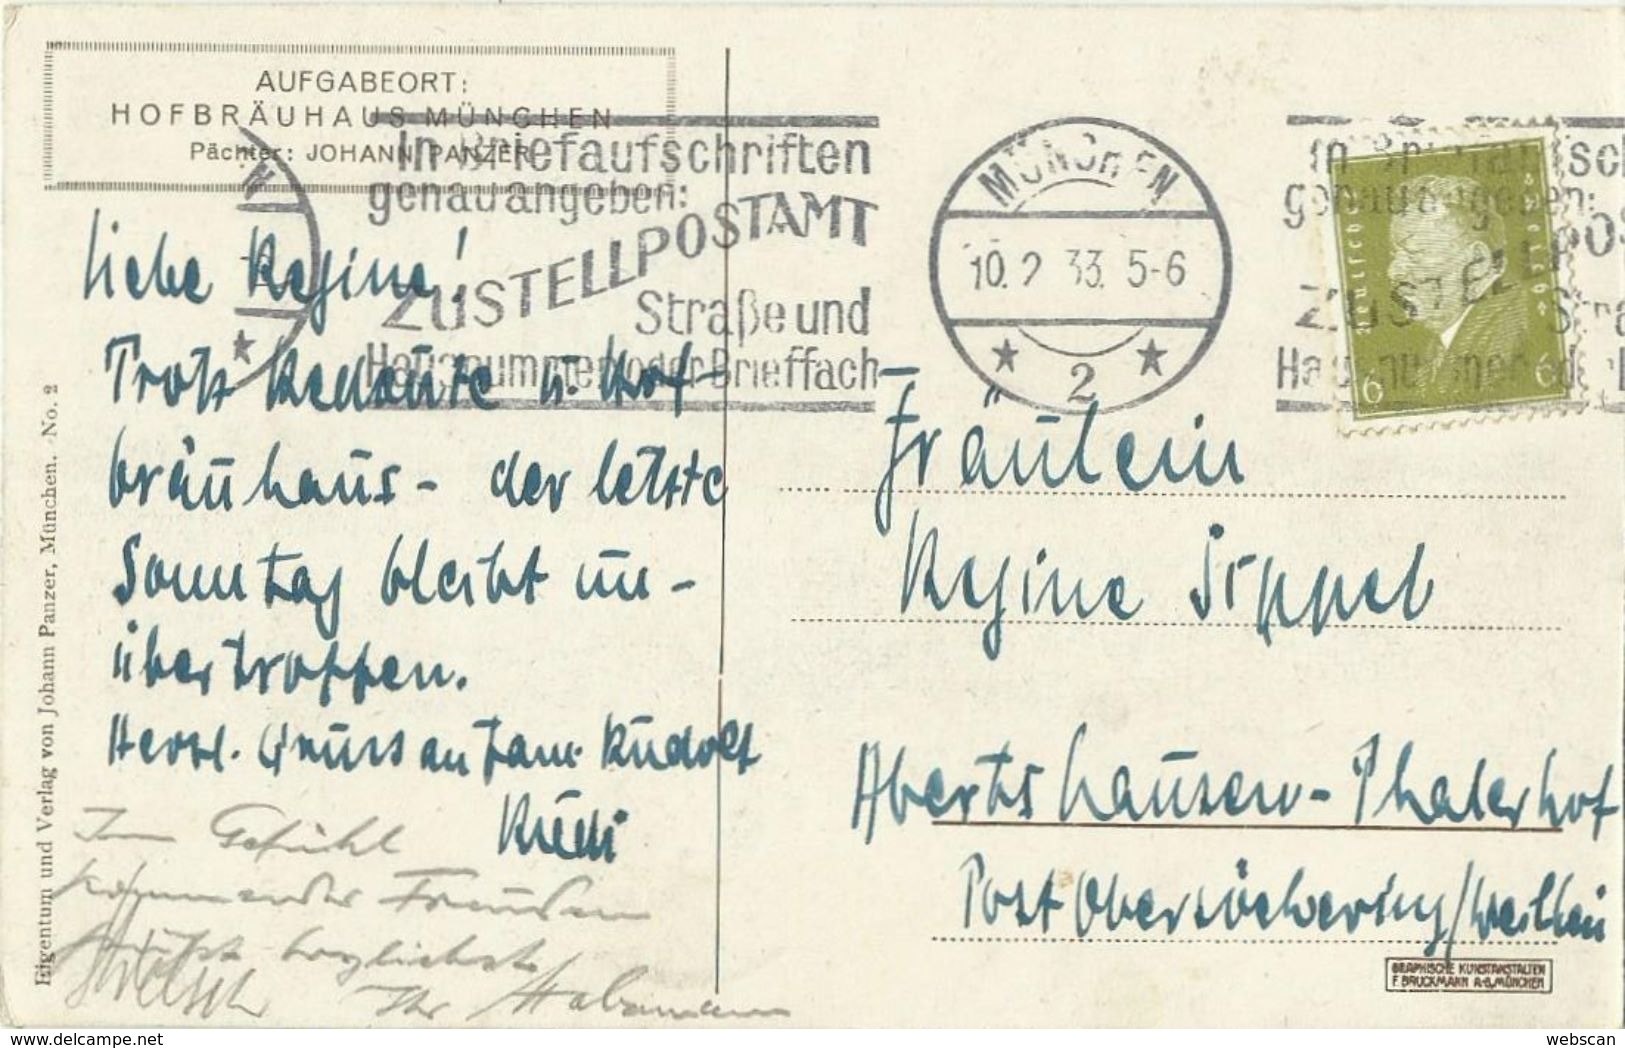 AUFGABEORT:
HOFBRÄUHAUS MÜNCHEN
Pächter: JOHANN PANZER
In Briefaufschriften
genau angeben:
ZUSTELLPOSTAMT
Straße und
Hausnummer oder Brieffach
MÜNCHEN
10.2.33. 5-6
2
In Briefaufsch
genau angeben:
ZUSTELLPOS
Stra
Hausnummer oder B
Deutsches Reich
6 6
Liebe Regine!
Trotz Redoute u. Hof-
bräuhaus - der letzte
Sonntag bleibt un-
übertroffen.
Herzl. Gruss an Fam. Rudolf
Rudi
Im Gefühl
kommender Freuden
grüßt herzlichst
Ihr Habamann
Fräulein
Regine Sippel
Abertshausen - Thalerhof
Post Obersöchering / Weilheim
Eigentum und Verlag von Johann Panzer, München. No. 2
GRAPHISCHE KUNSTANSTALTEN
F. BRUCKMANN A-G, MÜNCHEN
www.delcampe.net
webscan